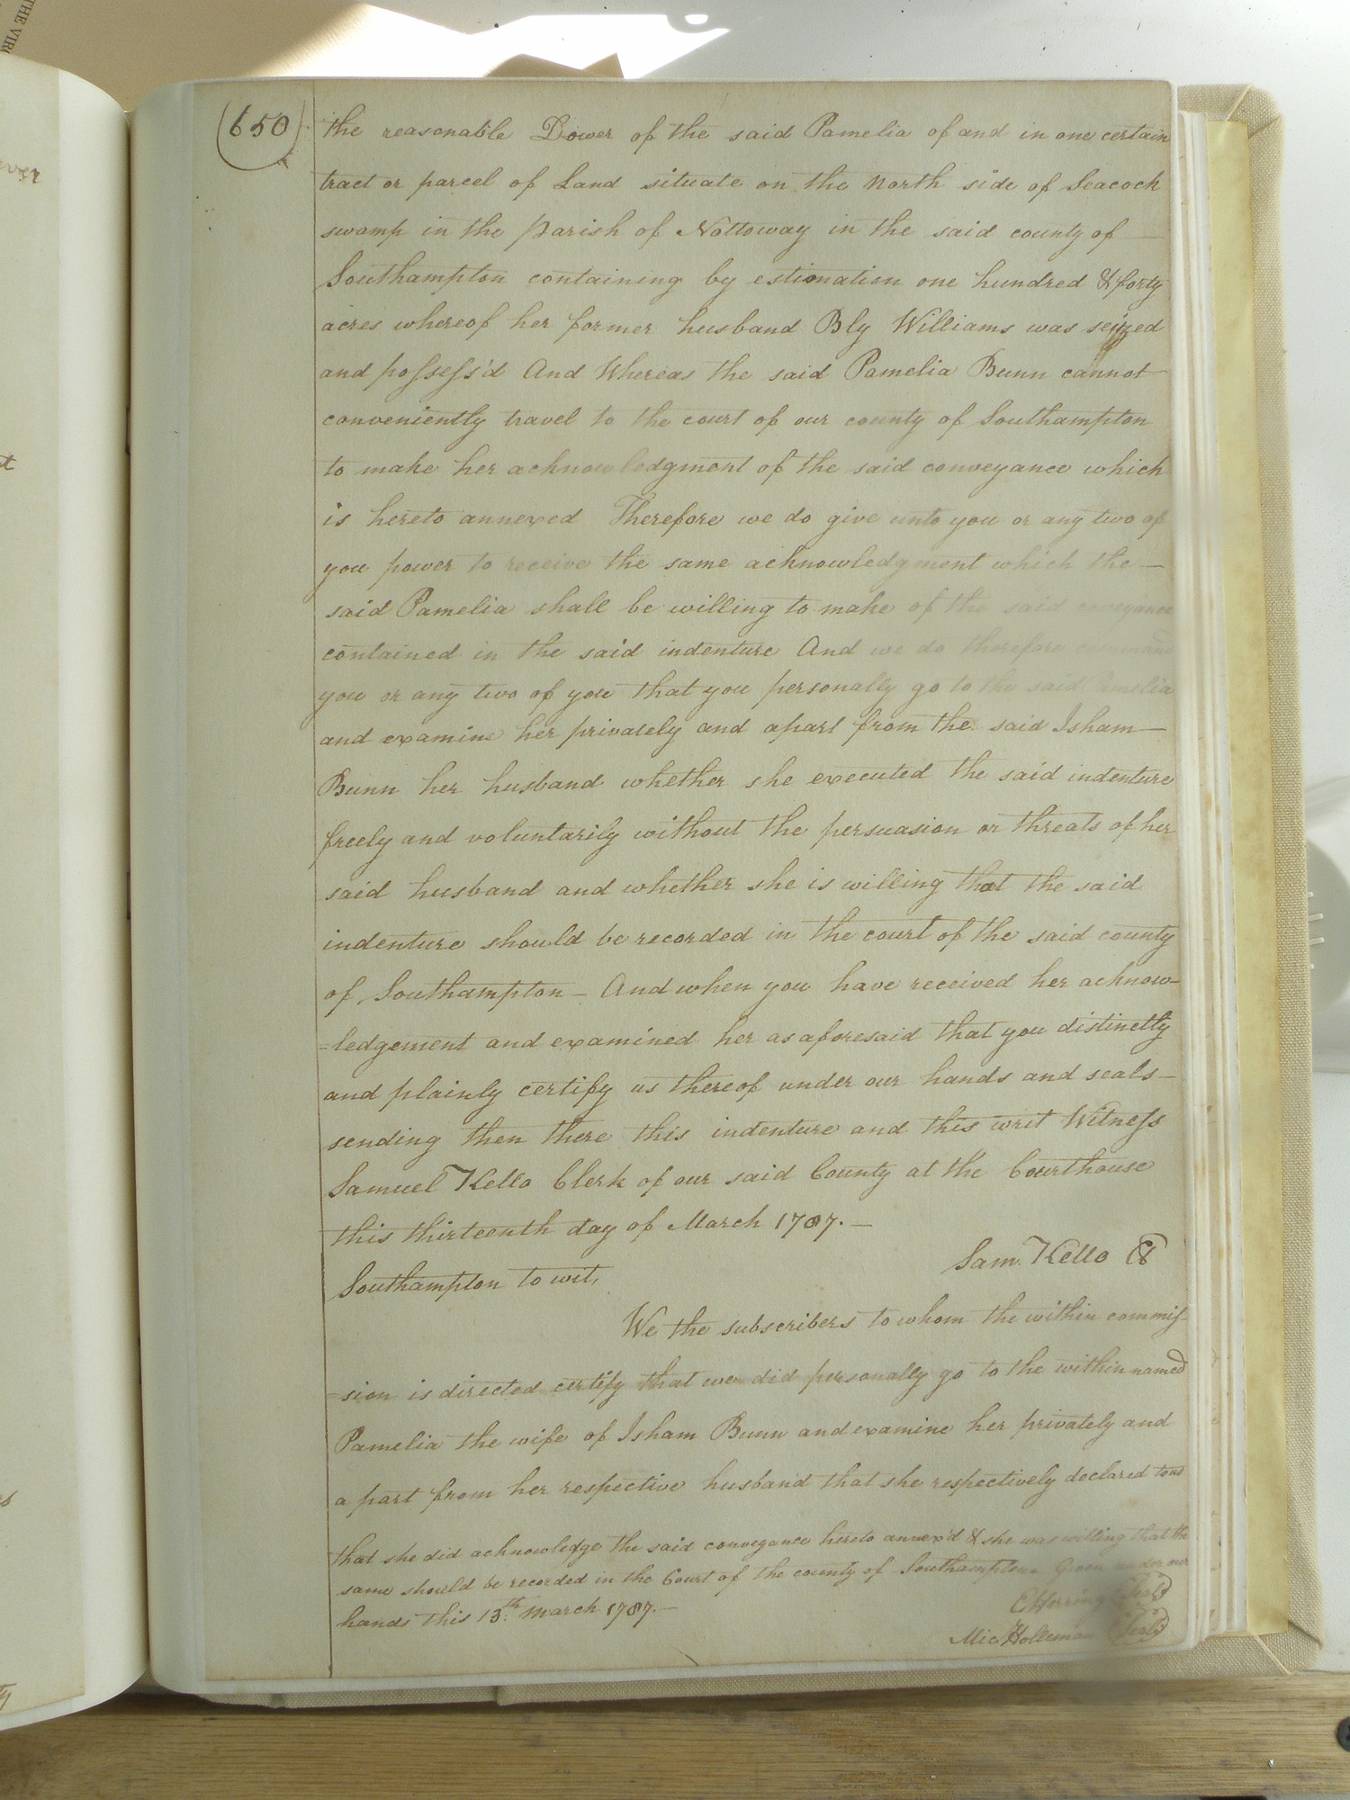 (650)
the reasonable Dower of the said Pamelia of and in one certain
tract or parcel of Land situate on the North side of Seacock
swamp in the Parish of Nottoway in the said county of —
Southampton containing by estimation one hundred & forty
acres whereof her former husband Bly Williams was seized
and possess'd And Whereas the said Pamelia Bunn cannot
conveniently travel to the court of our county of Southampton
to make her acknowledgment of the said conveyance which
is hereto annexed Therefore we do give unto you or any two of
you power to receive the same acknowledgment which the —
said Pamelia shall be willing to make of the said conveyance
contained in the said indenture And we do therefore command
you or any two of you that you personally go to the said Pamelia
and examine her privately and apart from the said Isham —
Bunn her husband whether she executed the said indenture
freely and voluntarily without the persuasion or threats of her
said husband and whether she is willing that the said
indenture should be recorded in the court of the said county
of Southampton — And when you have received her acknow-
=ledgement and examined her as aforesaid that you distinctly
and plainly certify us thereof under our hands and seals —
sending then there this indenture and this writ Witness
Samuel Kello Clerk of our said County at the Courthouse
this thirteenth day of March 1787. —
Sam. Kello Cl
Southampton to wit,
We the subscribers to whom the within commis-
=sion is directed certify that we did personally go to the within named
Pamelia the wife of Isham Bunn and examine her privately and
a part from her respective husband that she respectively declared to us
that she did acknowledge the said conveyance hereto annex'd & she was willing that the
same should be recorded in the Court of the county of Southampton. Given under our
hands this 13th. March 1787. —
Herring (Seal)
Mic Holleman (Seal)
THE VIR
ever